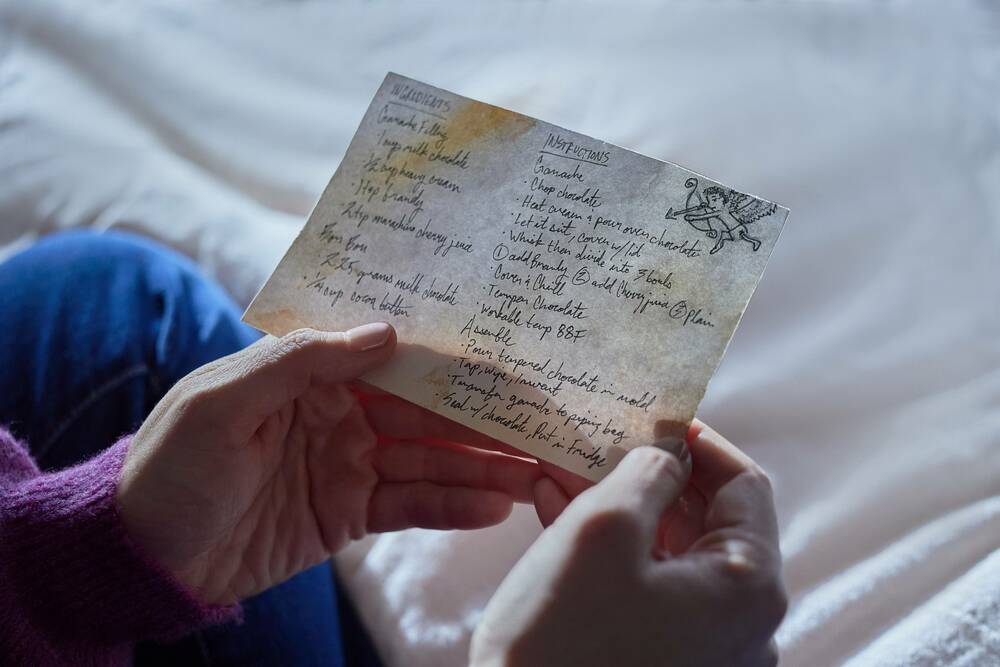 INGREDIENTS
Ganache Filling
1 cup milk chocolate
1/2 cup heavy cream
1 tsp brandy
2 tsp maraschino cherry juice
Bon Bon
225 grams milk chocolate
1/4 cup cocoa butter
INSTRUCTIONS
Ganache
· Chop chocolate
· Heat cream & pour over chocolate
· Let it sit, cover w/ lid
· Whisk then divide into 3 bowls
① add Brandy ② add Cherry juice ③ Plain
· Cover & Chill
· Temper Chocolate
· Workable temp 88F
Assemble
· Pour tempered chocolate in mold
· Tap, wipe, invert
· Transfer ganache to piping bag
· Seal w/ chocolate, Put in Fridge